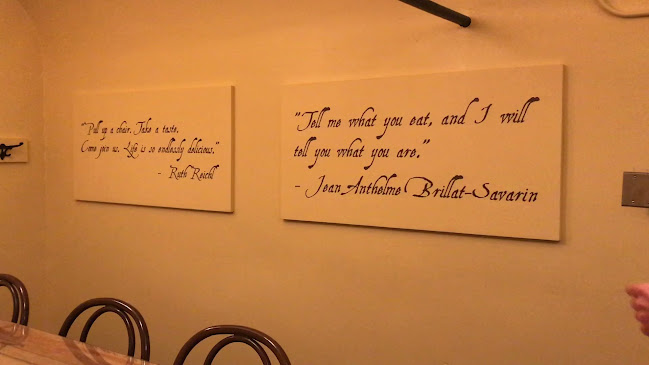 "Pull up a chair. Take a taste.
Come join us. Life is so endlessly delicious."
- Ruth Reichl
"Tell me what you eat, and I will
tell you what you are."
- Jean Anthelme Brillat-Savarin